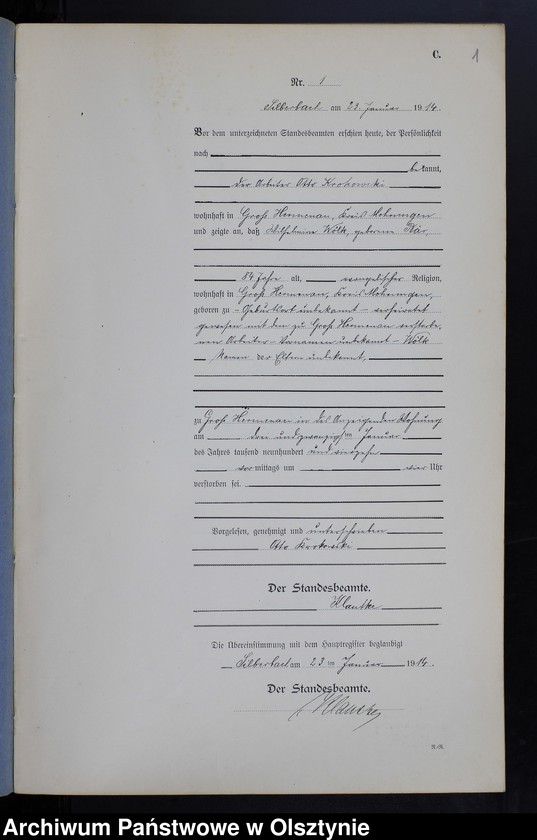 C.
1
Nr. 1
Silberbach am 23. Januar 1914.
Vor dem unterzeichneten Standesbeamten erschien heute, der Persönlichkeit
nach
bekannt,
der Arbeiter Otto Krokowski
wohnhaft in Groß Hermenau, Kreis Mohrungen
und zeigte an, daß Wilhelmine Wölk, geborene Bär,
84 Jahre alt, evangelischer Religion,
wohnhaft in Groß Hermenau, Kreis Mohrungen,
geboren zu - Geburtsort unbekannt - verheiratet
gewesen mit dem zu Groß Hermenau verstorbe-
nen Arbeiter - Vornamen unbekannt - Wölk
Namen der Eltern unbekannt,
zu Groß Hermenau in des Anzeigenden Wohnung
am drei und zwanzigsten Januar
des Jahres tausend neunhundert und vierzehn
vormittags um vier Uhr
verstorben sei.
Vorgelesen, genehmigt und unterschrieben
Otto Krokowski
Der Standesbeamte.
Klautke
Die Übereinstimmung mit dem Hauptregister beglaubigt
Silberbach am 23 ten Januar 1914.
Der Standesbeamte.
Klautke
R.-R.
Archiwum Państwowe w Olsztynie